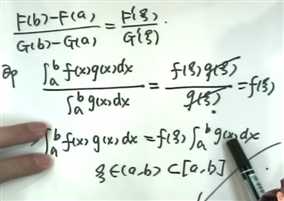 F(b)-F(a) / G(b)-G(a) = F'(ξ) / G'(ξ)
即 ∫_a^b f(x)g(x)dx / ∫_a^b g(x)dx = f(ξ)g(ξ) / g(ξ) = f(ξ)
∫_a^b f(x)g(x)dx = f(ξ)∫_a^b g(x)dx
ξ∈(a,b)⊂[a,b]